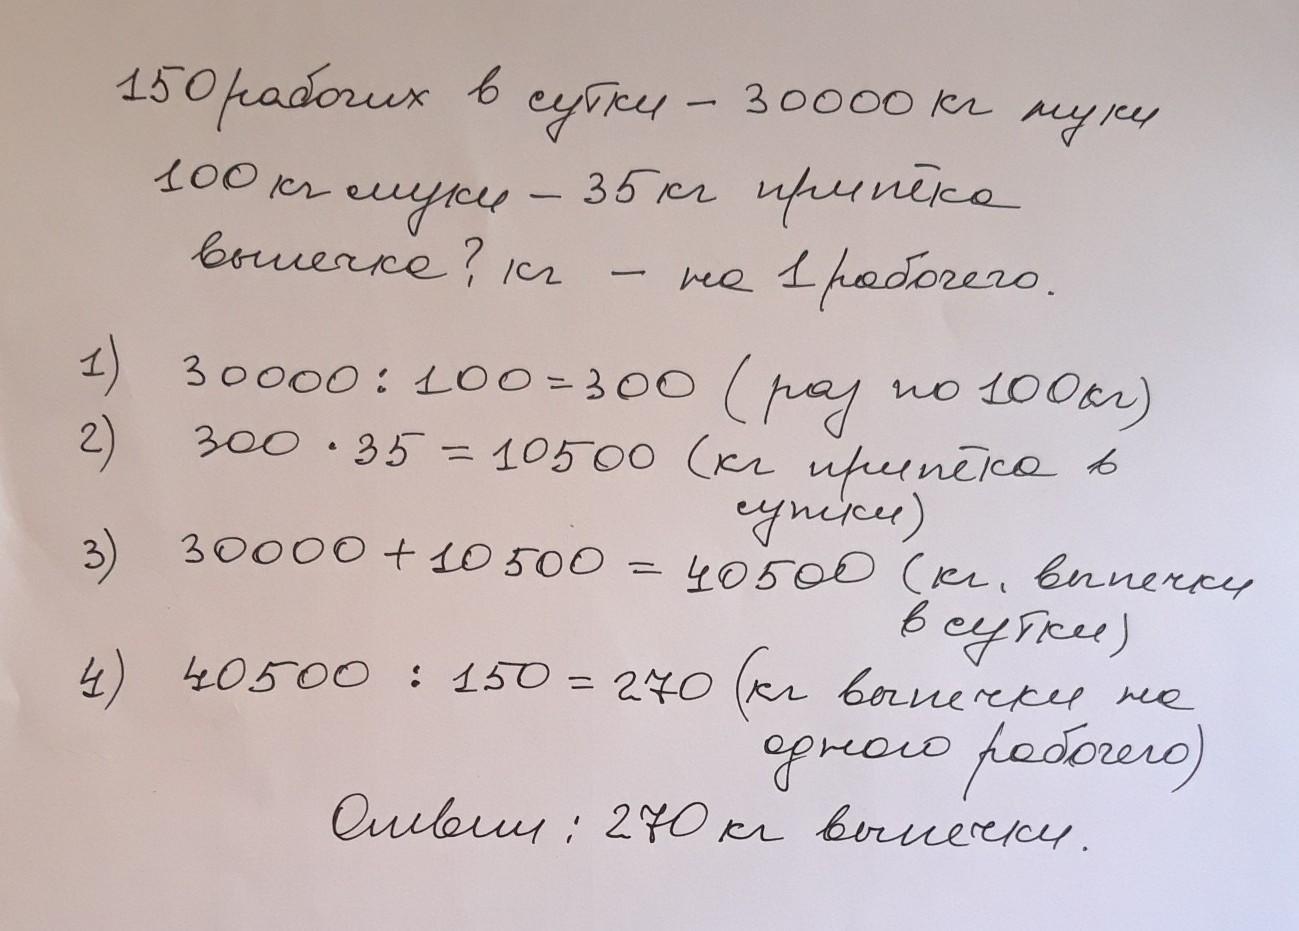 150 рабочих в сутки – 30000 кг муки
100 кг муки – 35 кг припёка
выпечка ? кг – на 1 рабочего.
1) 30000 : 100 = 300 (раз по 100кг)
2) 300 · 35 = 10500 (кг припёка в
сутки)
3) 30000 + 10500 = 40500 (кг. выпечки
в сутки)
4) 40500 : 150 = 270 (кг выпечки на
одного рабочего)
Ответ : 270 кг выпечки.